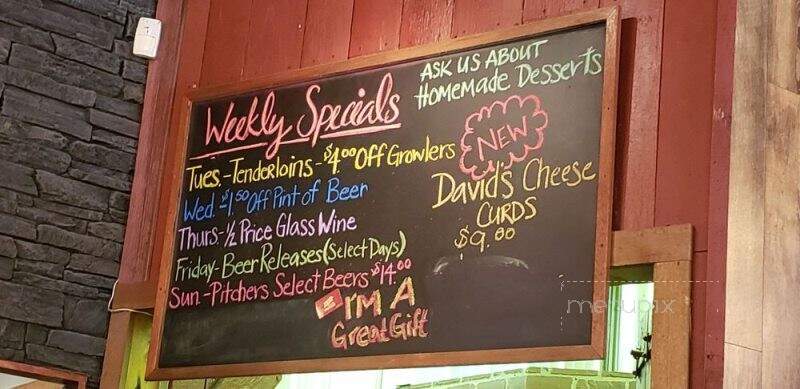 Weekly Specials
Tues.-Tenderloins-$4.00 Off Growlers
Wed. $1.50 Off Pint of Beer
Thurs.-½ Price Glass Wine
Friday-Beer Releases (Select Days)
Sun.-Pitchers Select Beers $14.00
I'M A
Great Gift
ASK US ABOUT
Homemade Desserts
NEW
David's Cheese
CURDS
$9.00
menupix